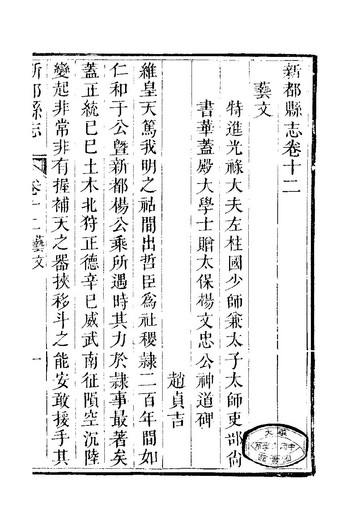 新都縣志卷十二
藝文
特進光祿大夫左柱國少師兼太子太師吏部尚
書華蓋殿大學士贈太保楊文忠公神道碑
趙貞吉
維皇天篤我明之祜間出哲臣爲社稷隷二百年間如
仁和于公曁新都楊公乘所遇時其力於隷事最著矣
蓋正統已巳土木北狩正德辛巳威武南征隕空沉陸
變起非常非有握補天之器挾移斗之能安敢援手其
新都縣志
卷十二藝文
一